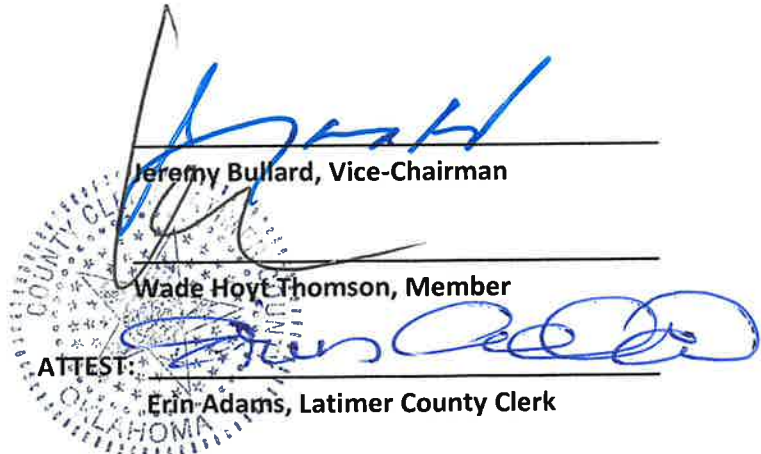 Jeremy Bullard, Vice-Chairman
Wade Hoyt Thomson, Member
ATTEST:
Erin Adams, Latimer County Clerk
COUNTY CL
OKLAHOMA